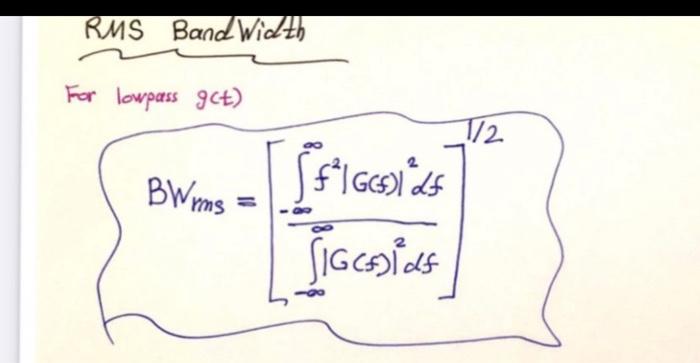 RMS BandWidth
For lowpass g(t)
BWrms = [ ∫_{-∞}^{∞} f²|G(f)|² df / ∫_{-∞}^{∞} |G(f)|² df ]^{1/2}